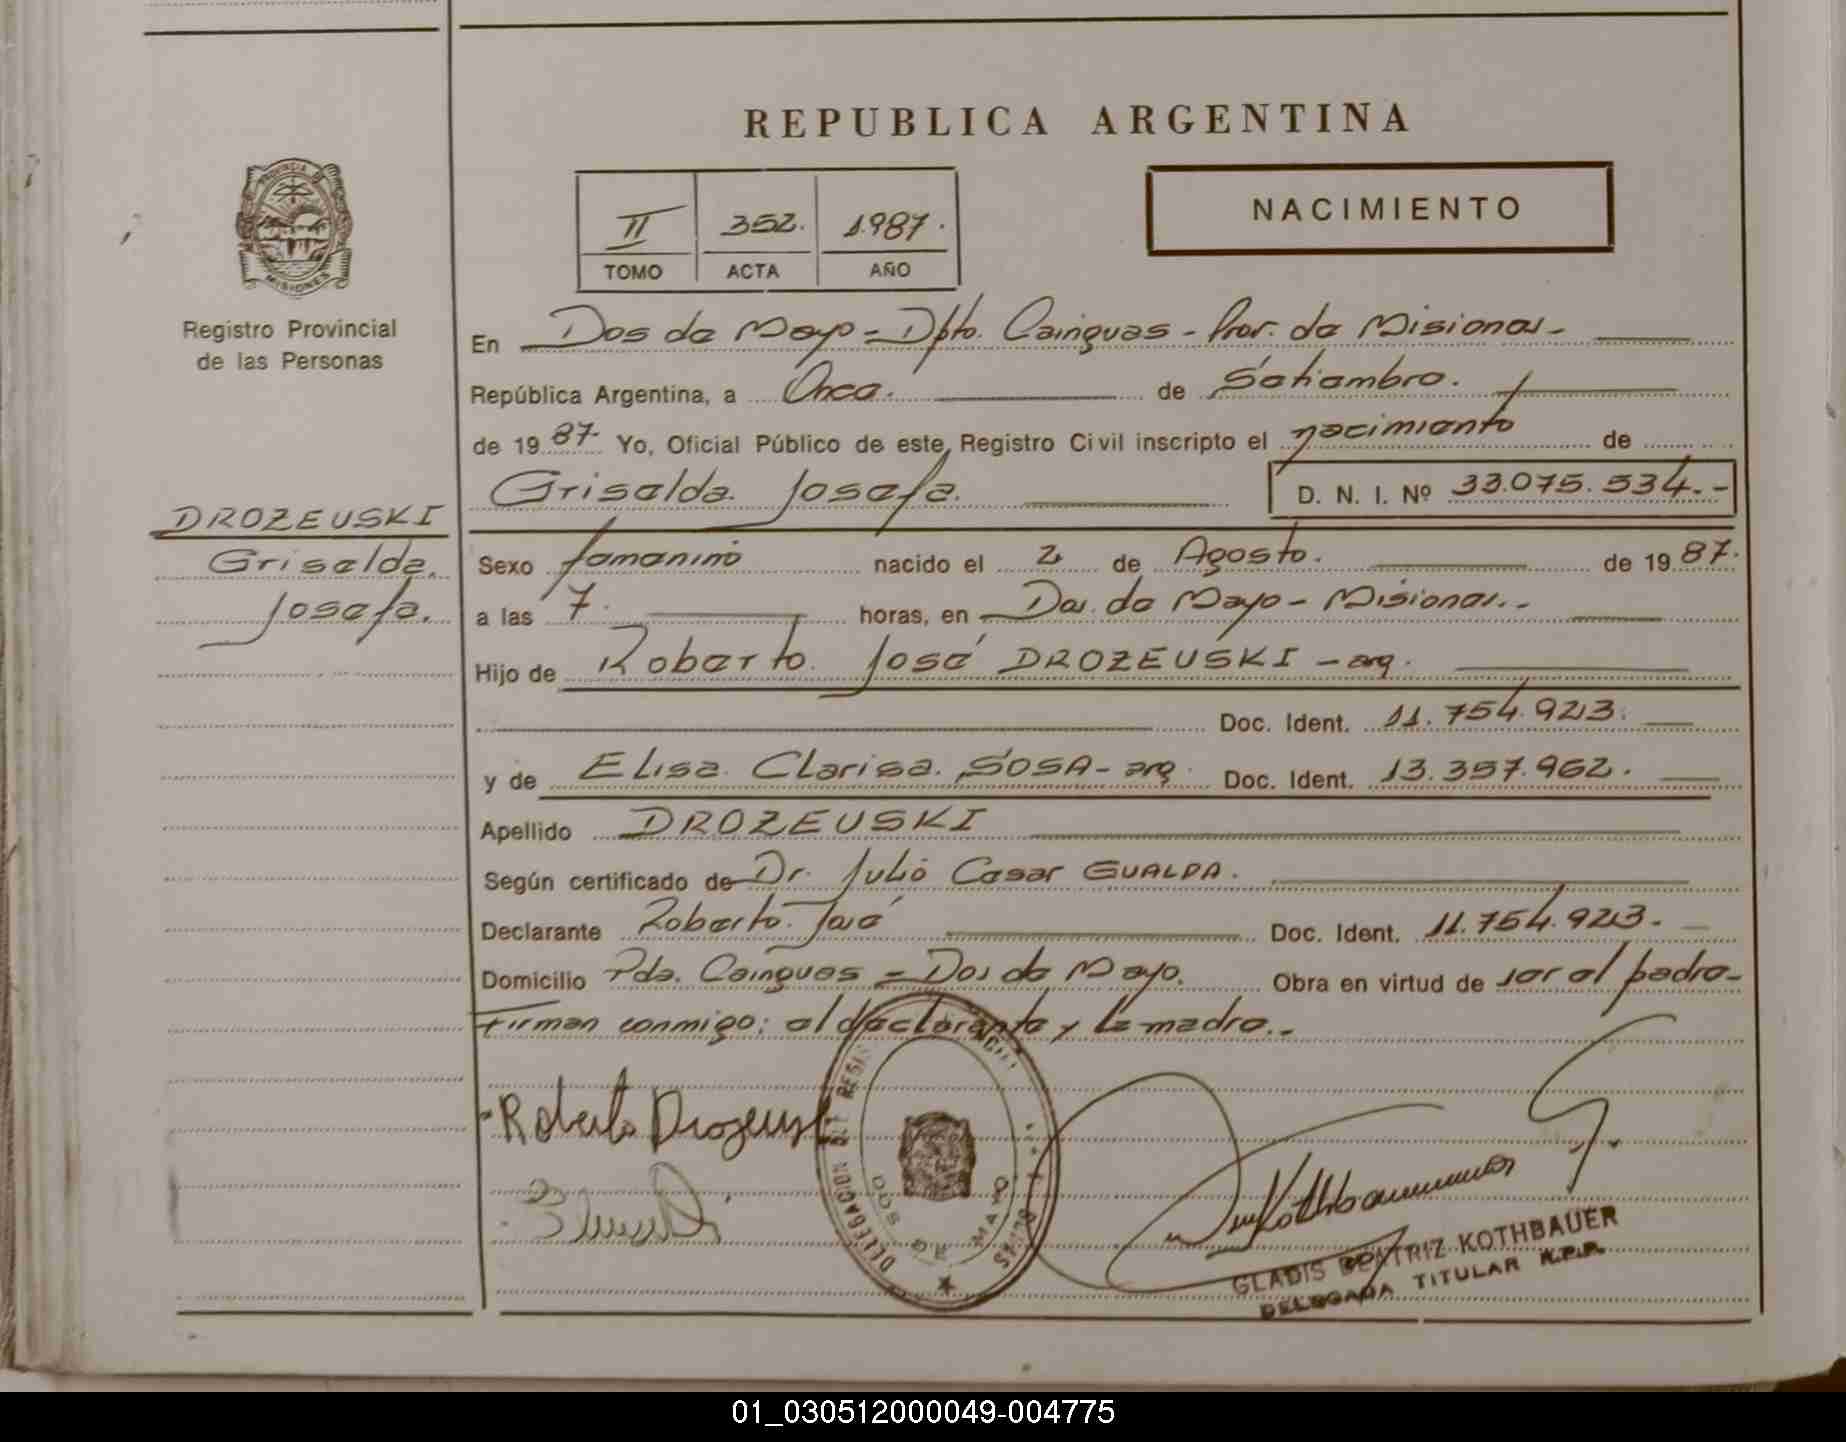 REPUBLICA ARGENTINA
PROVINCIA DE
MISIONES
Registro Provincial
de las Personas
II 352. 1.987.
TOMO ACTA AÑO
NACIMIENTO
En Dos de Mayo - Dpto. Cainguas - Prov. de Misiones -
República Argentina, a Once. de Setiembre.
de 19 87 Yo, Oficial Público de este Registro Civil inscripto el nacimiento de
Griselda Josefa. D. N. I. Nº 33.075.534.-
DROZEUSKI
Griselda.
Josefa.
Sexo femenino nacido el 2 de Agosto. de 19 87.
a las 7. horas, en Dos de Mayo - Misiones.-
Hijo de Roberto José DROZEUSKI - arg.
Doc. Ident. 11.754.923.
y de Elisa Clarisa SOSA - arg. Doc. Ident. 13.357.962.
Apellido DROZEUSKI
Según certificado de Dr. Julio Cesar GUALDA.
Declarante Roberto José Doc. Ident. 11.754.923.
Domicilio Pda. Cainguas - Dos de Mayo. Obra en virtud de ser el padre -
Firman conmigo: el declarante y la madre.-
Roberto
DELEGACION
DOS DE MAYO
GLADIS BEATRIZ KOTHBAUER
DELEGADA TITULAR R.P.P.
01_030512000049-004775